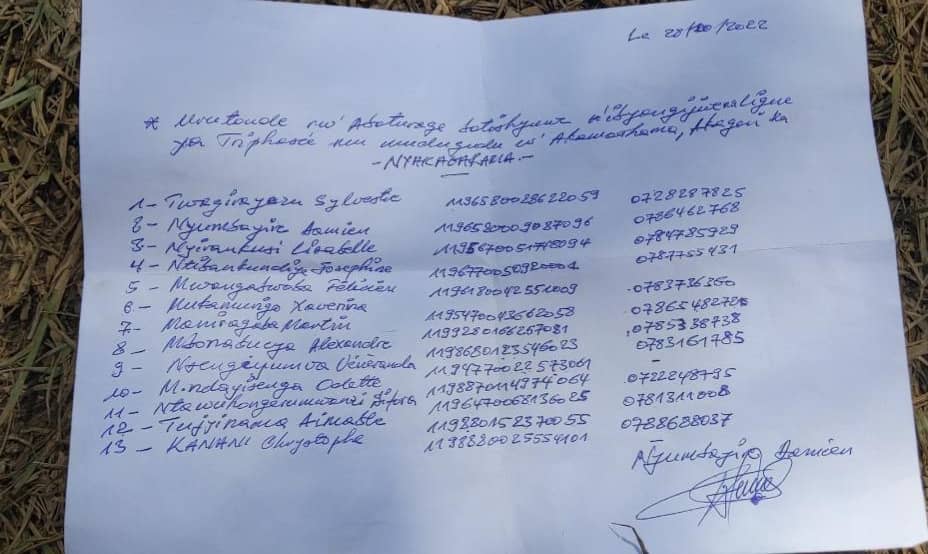 Le 28/10/2022
* Urutonde rw' Abaturage batishyuwe n'ibyangijwe na ligne
ya Triphasé mu mudugudu w' Akamashama, Akagari ka
- NYAKAGARAMA -
1- Twagirayezu Sylvestre 1196580028622059 0728287825
2- Nyumbayire Damien 1196580009087096 0786462768
3- Nyirankusi Lisabelle 0784785929
4- Ntibankundiye Josephine 0787755431
5 - Félicien 1196180042551009 0783736360
6 - Mutamungo Xaverina 1195470043662058
7- Maniragaba Martin 1199280166267081 0785338738
8 - Alexandre 1198680123546023 0783161785
9 - Nsengiyumva Vénéranda 1194770022573061 -
10- M.ndayisenga Odette 1198870114974064 0722248795
11- Difora 1196470068136025 0781311008
12- Tuyizhama Aimable 1198280152370055 0788628037
13 - KANANI Chrystophe 1198880025554101 -
Nyumbayire Damien